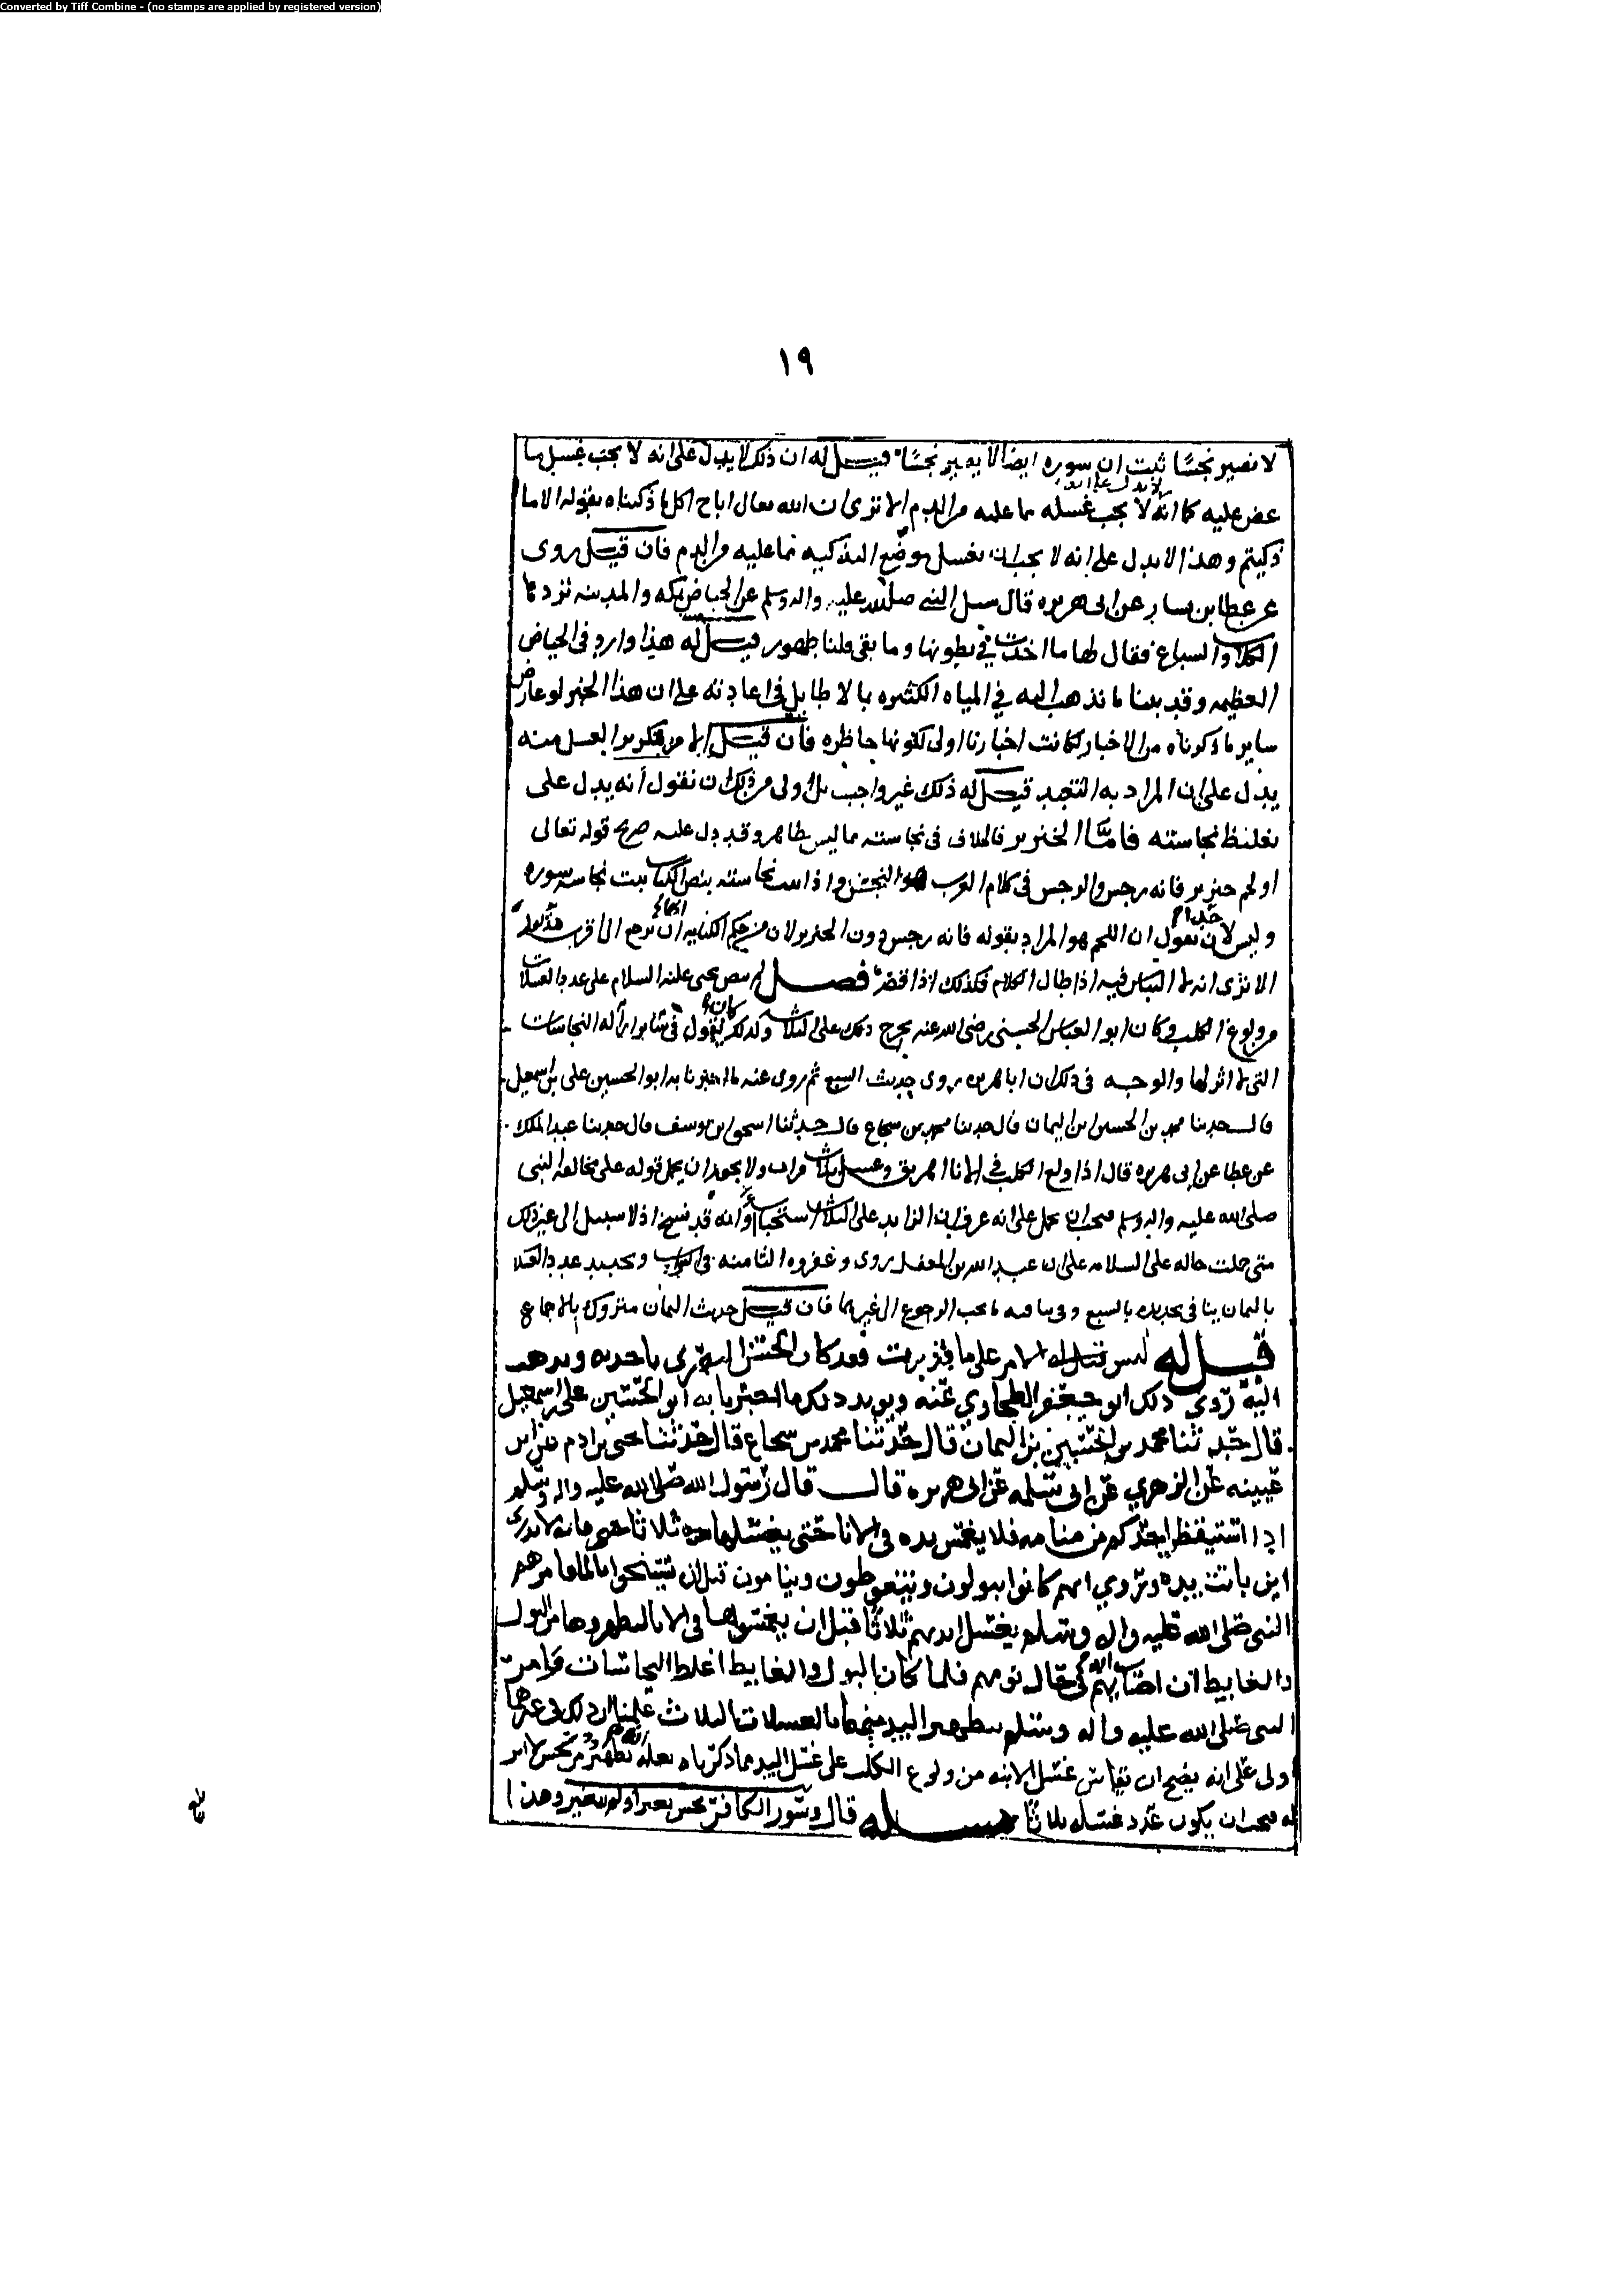 Converted by Tiff Combine - (no stamps are applied by registered version)
١٩
لا نصير نجسًا ثبت ان سوره ايضا لا يصير نجسًا قيل له ان ذلك لا يدل على انه لا يجب غسل ما
لا يدل على انه
عض عليه كما انه لا يجب غسله مما عليه من الدم الا ترى ان الله تعالى اباح اكل ما ذكيناه بقوله الا ما
ذكيتم وهذا لا يدل على انه لا يجب ان يغسل موضع التذكيه مما عليه من الدم فان قيل روى
عن عطا بن يسار عن ابى هريره قال سيل النبي صلى الله عليه واله وسلم عن الحياض بمكه والمدينه تردها
الكلاب والسباع فقال لها ما اخذت في بطونها وما بقى فلنا طهور قيل له هذا وارد في الحياض
العظيمه وقد بينا ما نذهب اليه في المياه الكثيره بما لا طايل في اعادته على ان هذا الخبر لو عارض
ساير ما ذكرناه من الاخبار لكانت اخبارنا اولى لكونها حاظره فان قيل ما من تكرير الغسل منه
يدل على ان المراد به التعبد قيل له ذلك غير واجب بل اولى من ذلك ان نقول انه يدل على
تغليظ نجاسته فاما الخنزير فالخلاف في نجاسته مما ليس بظاهر وقد دل عليه صريح قوله تعالى
او لحم خنزير فانه رجس والرجس في كلام العرب هو النجس واذا ثبت نجاسته بنص الكتاب ثبت نجاسه سوره
وليس لاحد ان يقول ان اللحم هو المراد بقوله فانه رجس دون الخنزير لان من حكم الكنايه ان ترجع الى اقرب مذكور
الا ترى انه لا التباس فيه اذا طال الكلام فكذلك اذا قصر فصل لم ينص يحيى عليه السلام على عدد الغسلات
من ولوغ الكلب وكان ابو العباس الحسني رضي الله عنه يخرج ذلك على الثلاث وكذلك كان يقول في ساير النجاسات
التي لا اثر لها والوجه في ذلك ان ابا هريره روى حديث السبع ثم روى عنه ما اخبرنا به ابو الحسين على بن اسمعيل
قال حدثنا محمد بن الحسين بن اليمان قال حدثنا محمد بن شجاع قال حدثنا اسحق بن يوسف قال حدثنا عبد الملك
عن عطا عن ابى هريره قال اذا ولغ الكلب في الانا اهريق وغسل ثلاث مرات ولا يجوز ان يحمل قوله على مخالفه النبي
صلى الله عليه واله وسلم فيجب ان يحمل على انه عرف ان الزايد على الثلاث استحباب او انه قد نسخ اذ لا سبيل الى غير ذلك
متى حملت حاله على السلامه على ان عبد الله بن المغفل روى وعفروه الثامنه في التراب وتحديد عدد الغسلات
بالثمان ينافي تحديده بالسبع وفي تنافيه ما يجب الرجوع الى غيرهما فان قيل حديث الثمان متروك بالاجماع
قيل له ليس الامر على ما قدرت فقد كان الحسن البصرى ياخذ به ويذهب
اليه روى ذلك ابو جعفر الطحاوي عنه ويويد ذلك ما اخبرنا به ابو الحسين على بن اسمعيل
قال حدثنا محمد بن الحسين بن اليمان قال حدثنا محمد بن شجاع قال حدثنا يحيى بن ادم عن ابن
عيينه عن الزهري عن ابى سلمه عن ابى هريره قال قال رسول الله صلى الله عليه واله وسلم
اذا استيقظ احدكم من منامه فلا يغمس يده في الانا حتى يغسلها ثلاثا فانه لا يدرى
اين باتت يده وتروي انهم كانوا يبولون ويتغوطون وينامون قبل ان يستنجوا بالما فامرهم
النبي صلى الله عليه واله وسلم بغسل ايديهم ثلاثا قبل ان يغمسوها في الانا ليطهروها من البول
والغايط ان اصاب ايديهم في حال نومهم فلما كان البول والغايط اغلظ النجاسات وامر
النبي صلى الله عليه واله وسلم بتطهير اليد منهما بالغسلات الثلاث علمنا ان ذلك في غيرها
اولى على انه يصح ان يقاس غسل الانيه من ولوغ الكلب على غسل اليد مما ذكرناه بعله انه تطهير من نجس لا اثر
له فيجب ان يكون عدد غسله ثلاثا مسئله قال وسور الكافر نجس تغير او لم يتغير وهذا